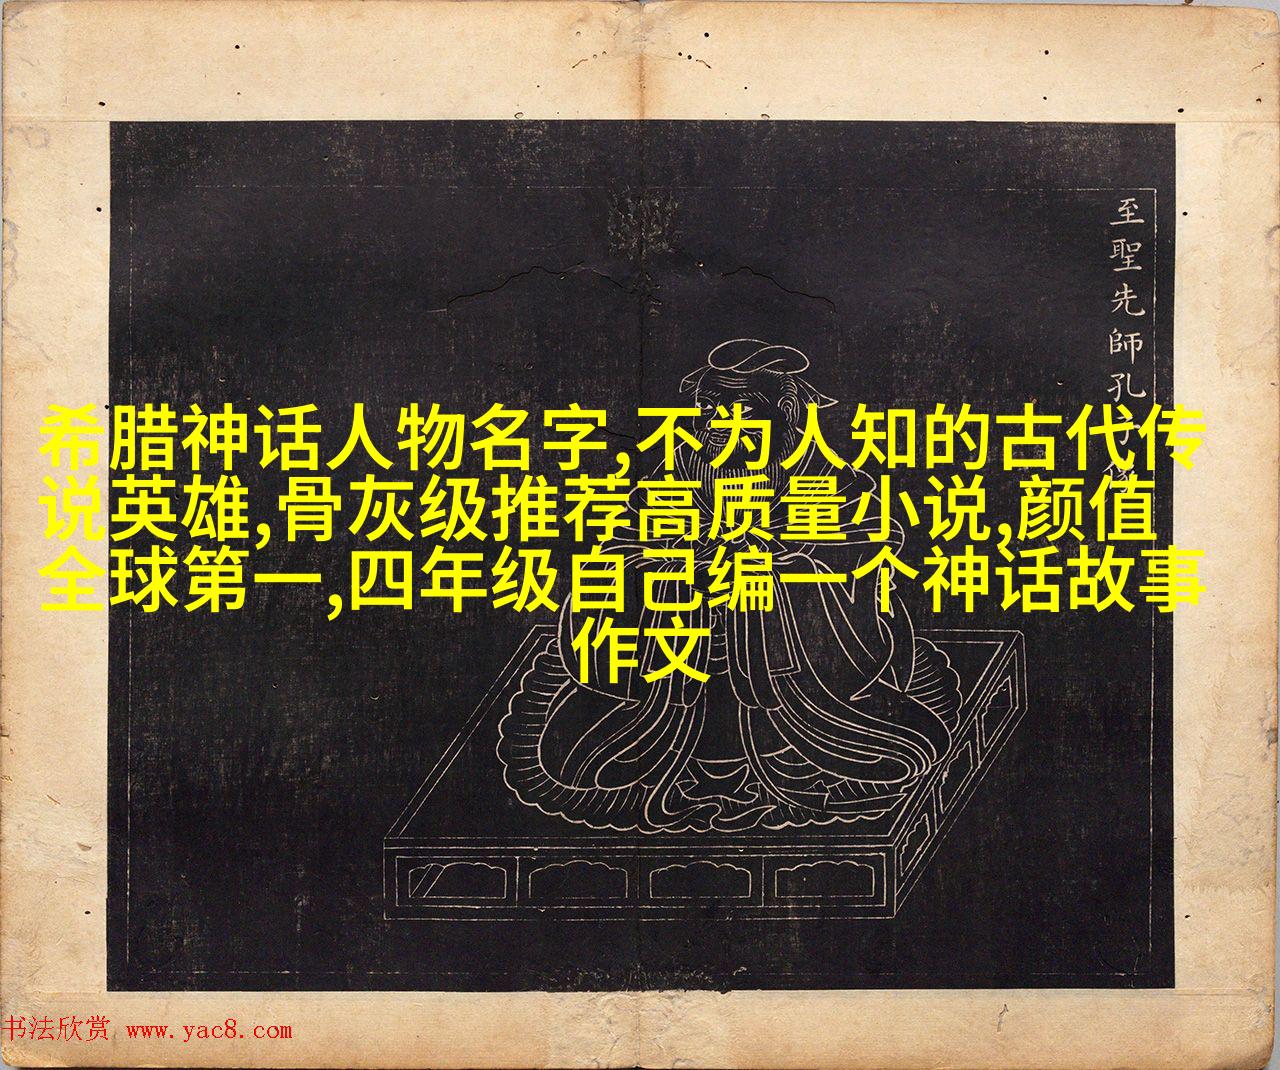 至聖先師孔
希腊神话人物名字,不为人知的古代传
说英雄,骨灰级推荐高质量小说,颜值
全球第一,四年级自己编一个神话故事
作文
书法欣赏 www.yac8.com